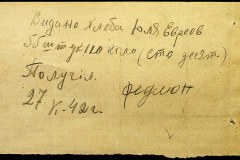 Видано хлеба для Евреев
55 штук 110 кило (сто десят.)
Получил.
27/V-42г. Федюн